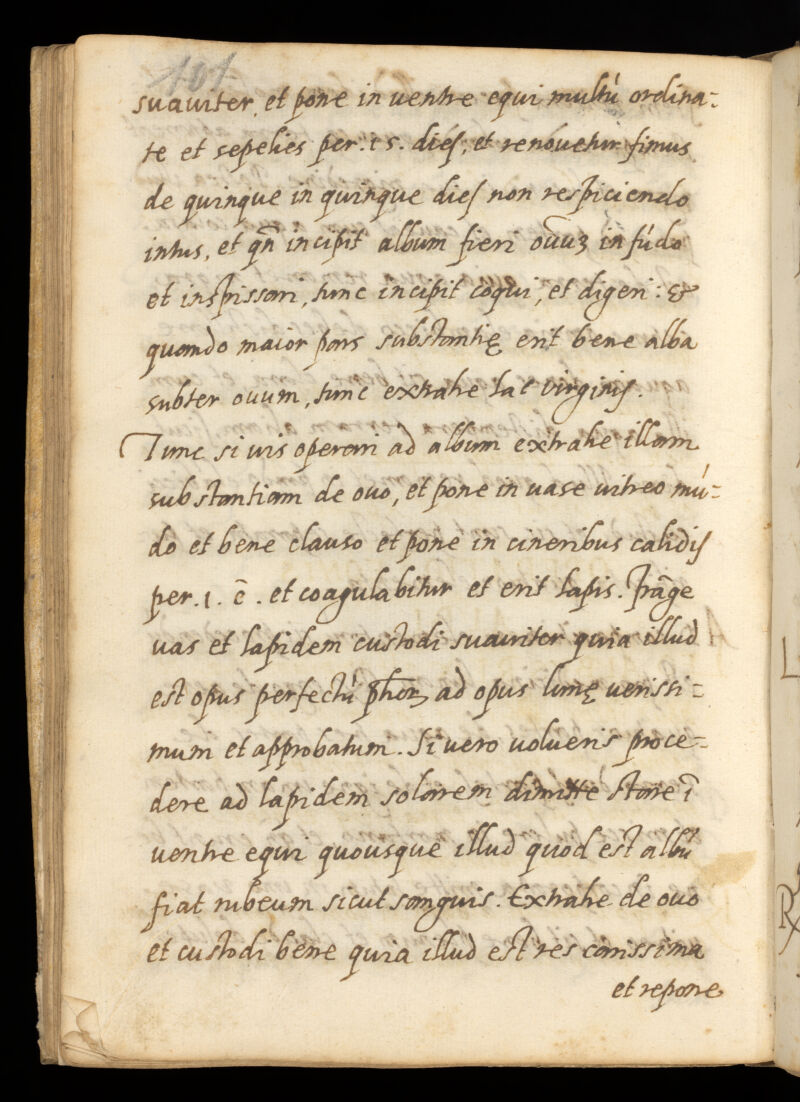 101
suauiter, et pone in uentre equi multú ordina=
te et sepelies per .15. dies, et renouetur fimus
de quinque in quinque dies non respiciendo
intus, et qñ incipit album fieri ouuʒ in fúdo
et inspissari, tunc incipit coqui, et digeri : &
quando maior pars substantię erit bene alba
subter ouum, tunc extrahe lac virginis.
Tunc si uis operari ad album extrahe illam
substantiam de ouo, et pone in uase uitreo mú=
do et bene clauso et pone in cineribus calidis
per .1. et coagulabitur et erit lapis. frāge
uas et lapidem custodi suauiter quia illud
est opus perfectú ad opus lunę uerissi=
mum et approbatum. Si uero uolueris proce=
dere ad lapidem solarem dimitte stare ī
uentre equi quousque illud quod est albú
fiat rubeum sicut sanguis. Extrahe de ouo
et custodi bene quia illud est res carissima
et repone